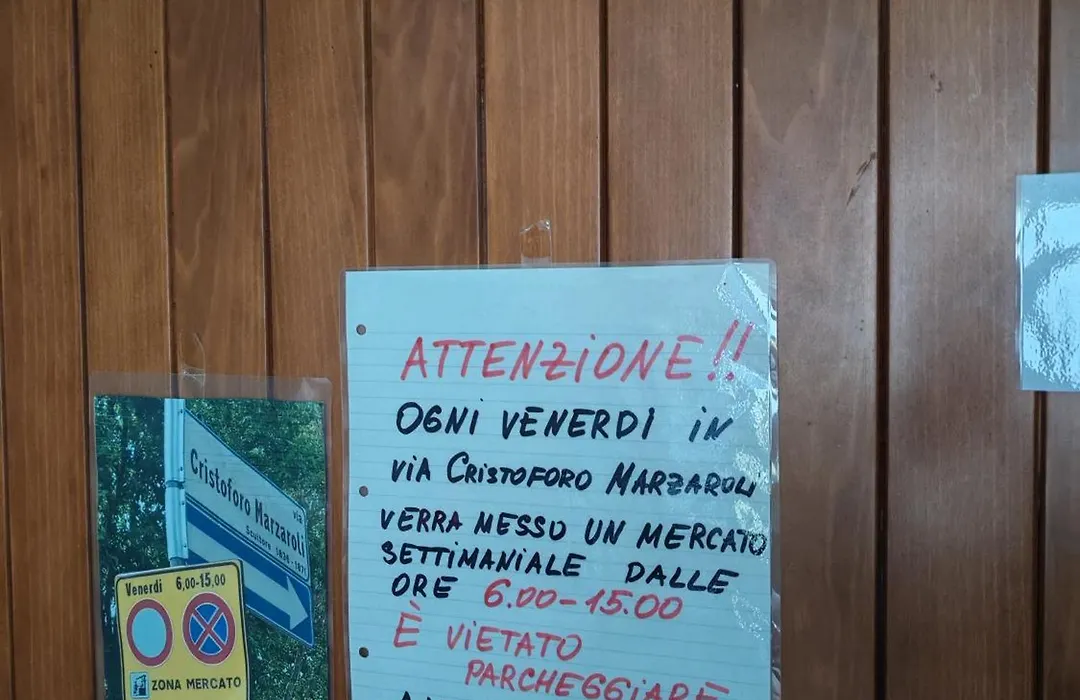 ATTENZIONE!!
OGNI VENERDI IN
VIA CRISTOFORO MARZAROLI
VERRA MESSO UN MERCATO
SETTIMANIALE DALLE
ORE 6.00-15.00
È VIETATO
PARCHEGGIARE
via
Cristoforo Marzaroli
Scultore 1836-1871
Venerdi 6,00-15,00
ZONA MERCATO